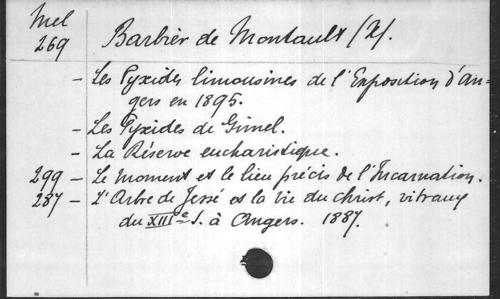 Mel
269 Barbier de Montault (X).
- Les Pyxides limousines de l'Exposition d'An-
gers en 1895.
- Les Pyxides de Gimel.
- La Réserve eucharistique.
299 - Le moment et le lieu précis de l'Incarnation.
287 - L'Arbre de Jessé et la vie du Christ, vitraux
du XIIIe s. à Angers. 1887.